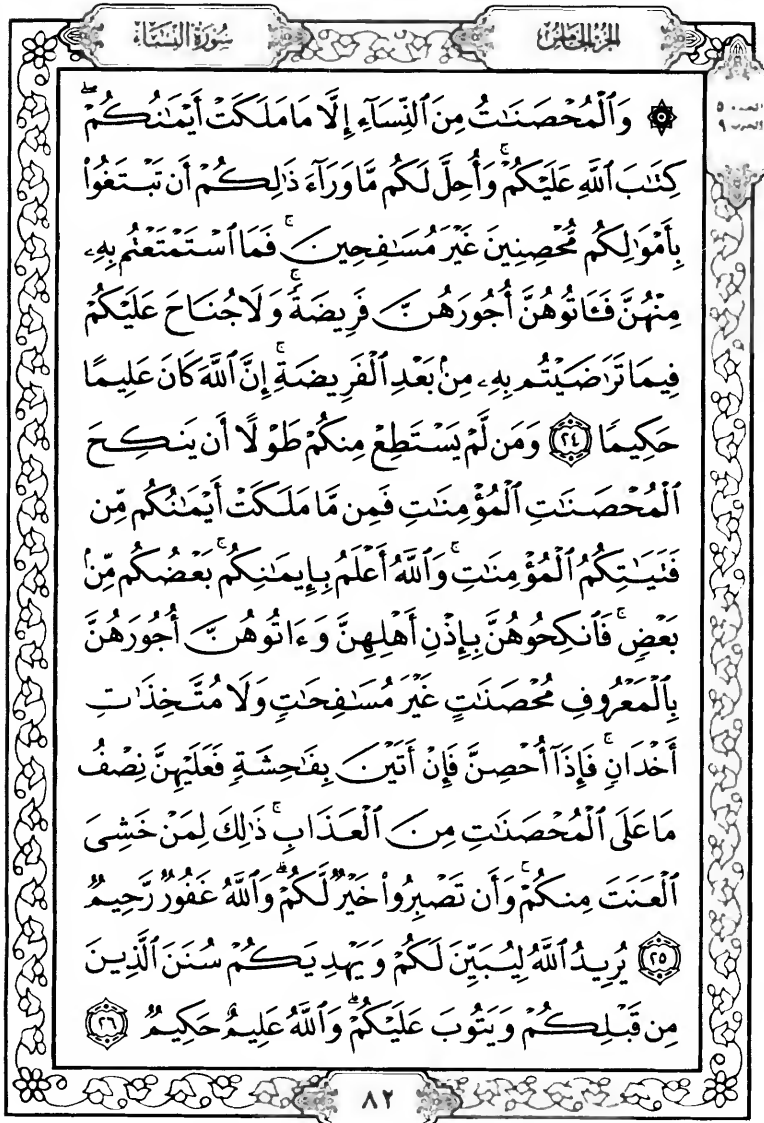 سُورَةُ النِّسَاءِ
الجزء الخامس
۞ وَٱلْمُحْصَنَٰتُ مِنَ ٱلنِّسَآءِ إِلَّا مَا مَلَكَتْ أَيْمَٰنُكُمْ ۖ
كِتَٰبَ ٱللَّهِ عَلَيْكُمْ ۚ وَأُحِلَّ لَكُم مَّا وَرَآءَ ذَٰلِكُمْ أَن تَبْتَغُوا۟
بِأَمْوَٰلِكُم مُّحْصِنِينَ غَيْرَ مُسَٰفِحِينَ ۚ فَمَا ٱسْتَمْتَعْتُم بِهِۦ
مِنْهُنَّ فَـَٔاتُوهُنَّ أُجُورَهُنَّ فَرِيضَةً ۚ وَلَا جُنَاحَ عَلَيْكُمْ
فِيمَا تَرَٰضَيْتُم بِهِۦ مِنۢ بَعْدِ ٱلْفَرِيضَةِ ۚ إِنَّ ٱللَّهَ كَانَ عَلِيمًا
حَكِيمًا ٢٤ وَمَن لَّمْ يَسْتَطِعْ مِنكُمْ طَوْلًا أَن يَنكِحَ
ٱلْمُحْصَنَٰتِ ٱلْمُؤْمِنَٰتِ فَمِن مَّا مَلَكَتْ أَيْمَٰنُكُم مِّن
فَتَيَٰتِكُمُ ٱلْمُؤْمِنَٰتِ ۚ وَٱللَّهُ أَعْلَمُ بِإِيمَٰنِكُم ۚ بَعْضُكُم مِّنۢ
بَعْضٍ ۚ فَٱنكِحُوهُنَّ بِإِذْنِ أَهْلِهِنَّ وَءَاتُوهُنَّ أُجُورَهُنَّ
بِٱلْمَعْرُوفِ مُحْصَنَٰتٍ غَيْرَ مُسَٰفِحَٰتٍ وَلَا مُتَّخِذَٰتِ
أَخْدَانٍ ۚ فَإِذَآ أُحْصِنَّ فَإِنْ أَتَيْنَ بِفَٰحِشَةٍ فَعَلَيْهِنَّ نِصْفُ
مَا عَلَى ٱلْمُحْصَنَٰتِ مِنَ ٱلْعَذَابِ ۚ ذَٰلِكَ لِمَنْ خَشِىَ
ٱلْعَنَتَ مِنكُمْ ۚ وَأَن تَصْبِرُوا۟ خَيْرٌ لَّكُمْ ۗ وَٱللَّهُ غَفُورٌ رَّحِيمٌ
٢٥ يُرِيدُ ٱللَّهُ لِيُبَيِّنَ لَكُمْ وَيَهْدِيَكُمْ سُنَنَ ٱلَّذِينَ
مِن قَبْلِكُمْ وَيَتُوبَ عَلَيْكُمْ ۗ وَٱللَّهُ عَلِيمٌ حَكِيمٌ ٢٦
٨٢